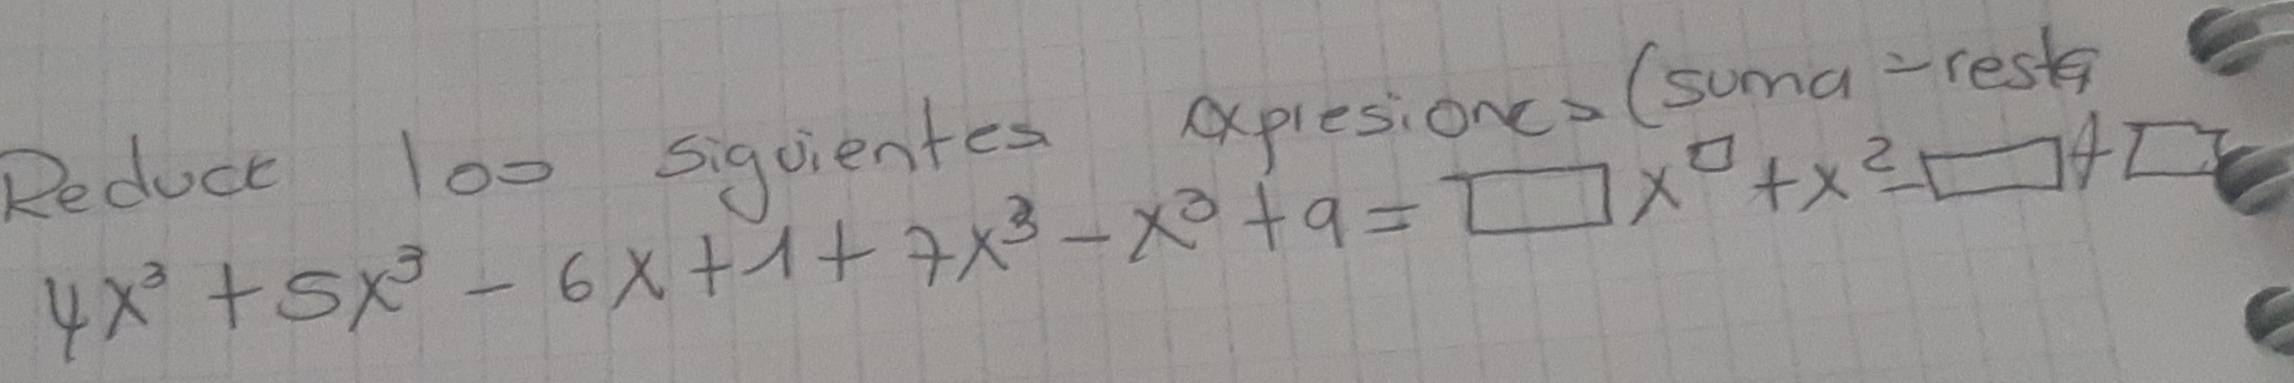 Reduce los siguientes expresiones (suma - resta
4x³ + 5x³ - 6x + 1 + 7x³ - x³ + 9 = □ x^□ + x² - □ + □